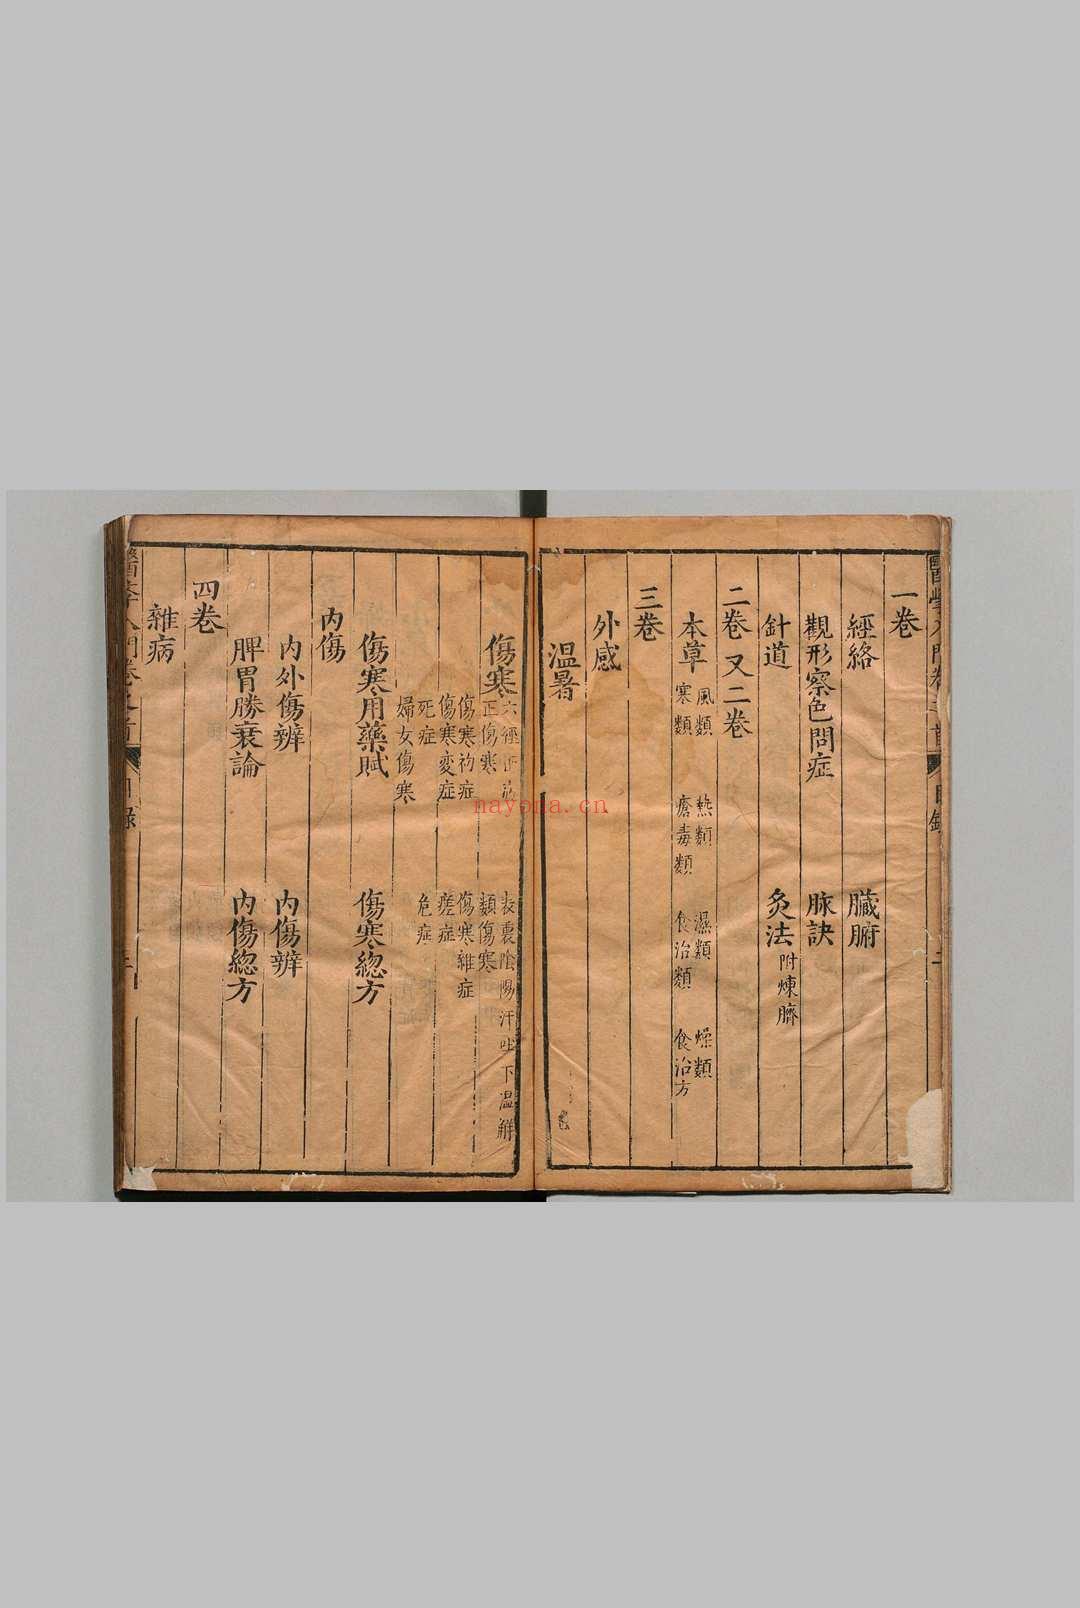 一卷
經絡 臟腑
觀形察色問症 脉訣
針道 灸法 附煉臍
二卷 又二卷
本草 風類 熱類 濕類 燥類
寒類 瘡毒類 食治類 食治方
三卷
外感
温暑
傷寒 六經正病 表裏陰陽汗吐下温解
正傷寒 類傷寒
傷寒初症 傷寒雜症
傷寒変症 瘥症
死症 危症
婦女傷寒
傷寒用藥賦 傷寒總方
內傷
內外傷辨 內傷辨
脾胃勝衰論 內傷總方
四卷
雜病
nayona.cn